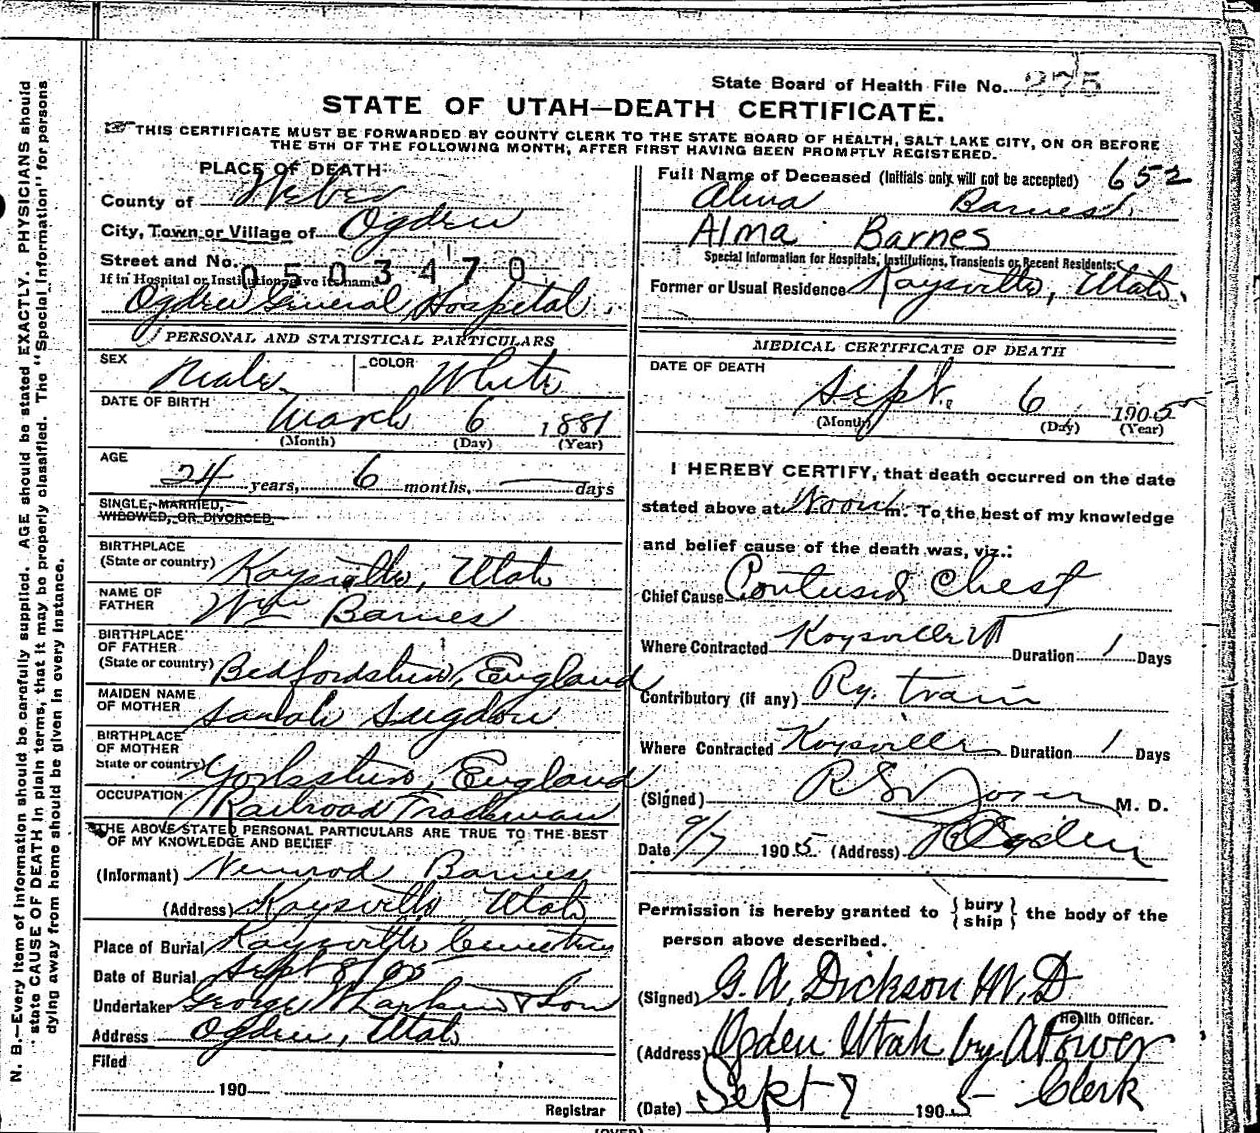 State Board of Health File No. 275
STATE OF UTAH—DEATH CERTIFICATE.
THIS CERTIFICATE MUST BE FORWARDED BY COUNTY CLERK TO THE STATE BOARD OF HEALTH, SALT LAKE CITY, ON OR BEFORE
THE 5TH OF THE FOLLOWING MONTH, AFTER FIRST HAVING BEEN PROMPTLY REGISTERED.
PLACE OF DEATH
County of Weber
City, Town or Village of Ogden
Street and No.
0503470
If in Hospital or Institution, give its name
Ogden General Hospital
PERSONAL AND STATISTICAL PARTICULARS
SEX Male COLOR White
DATE OF BIRTH March 6 1881
(Month) (Day) (Year)
AGE
24 years, 6 months, — days
SINGLE, MARRIED,
WIDOWED, OR DIVORCED
BIRTHPLACE
(State or country) Kaysville, Utah
NAME OF
FATHER Wm Barnes
BIRTHPLACE
OF FATHER
(State or country) Bedfordshire, England
MAIDEN NAME
OF MOTHER Sarah Sugden
BIRTHPLACE
OF MOTHER
State or country) Yorkshire, England
OCCUPATION Railroad Trackman
THE ABOVE STATED PERSONAL PARTICULARS ARE TRUE TO THE BEST
OF MY KNOWLEDGE AND BELIEF
(Informant) Nimrod Barnes
(Address) Kaysville, Utah
Place of Burial Kaysville Cemetery
Date of Burial Sept 8/05
Undertaker George W Larkin & Son
Address Ogden, Utah
Filed
190
Registrar
Full Name of Deceased (Initials only will not be accepted) 652
Alma Barnes
Alma Barnes
Special Information for Hospitals, Institutions, Transients or Recent Residents:
Former or Usual Residence Kaysville, Utah
MEDICAL CERTIFICATE OF DEATH
DATE OF DEATH
Sept. 6 1905
(Month) (Day) (Year)
I HEREBY CERTIFY, that death occurred on the date
stated above at Noon m. To the best of my knowledge
and belief cause of the death was, viz.:
Chief Cause Contused Chest
Where Contracted Kaysville Ut Duration 1 Days
Contributory (if any) Ry. train
Where Contracted Kaysville Duration 1 Days
(Signed) M. D.
Date 9/7 1905 (Address) Ogden
Permission is hereby granted to { bury
ship } the body of the
person above described.
(Signed) G. A. Dickson M. D
Health Officer.
(Address) Ogden Utah by A Power
Clerk
(Date) Sept 7 1905
(OVER)
N. B.—Every item of information should be carefully supplied. AGE should be stated EXACTLY. PHYSICIANS should
state CAUSE OF DEATH in plain terms, that it may be properly classified. The "Special Information" for persons
dying away from home should be given in every instance.